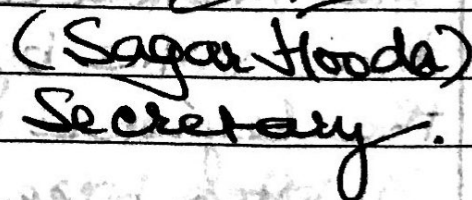 (Sagar Hooda)
Secretary.